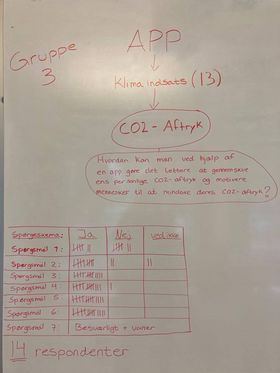 Gruppe
3
APP
Klimaindsats (13)
CO2-Aftryk
Hvordan kan man ved hjælp af
en app gøre det lettere at gennemskue
ens personlige CO2-aftryk og motivere
mennesker til at mindske deres CO2-aftryk?
Spørgeskema: Ja Nej Ved ikke
Spørgsmål 1:
Spørgsmål 2:
Spørgsmål 3:
Spørgsmål 4:
Spørgsmål 5
Spørgsmål 6:
Spørgsmål 7: Besværligt + vaner
14 respondenter